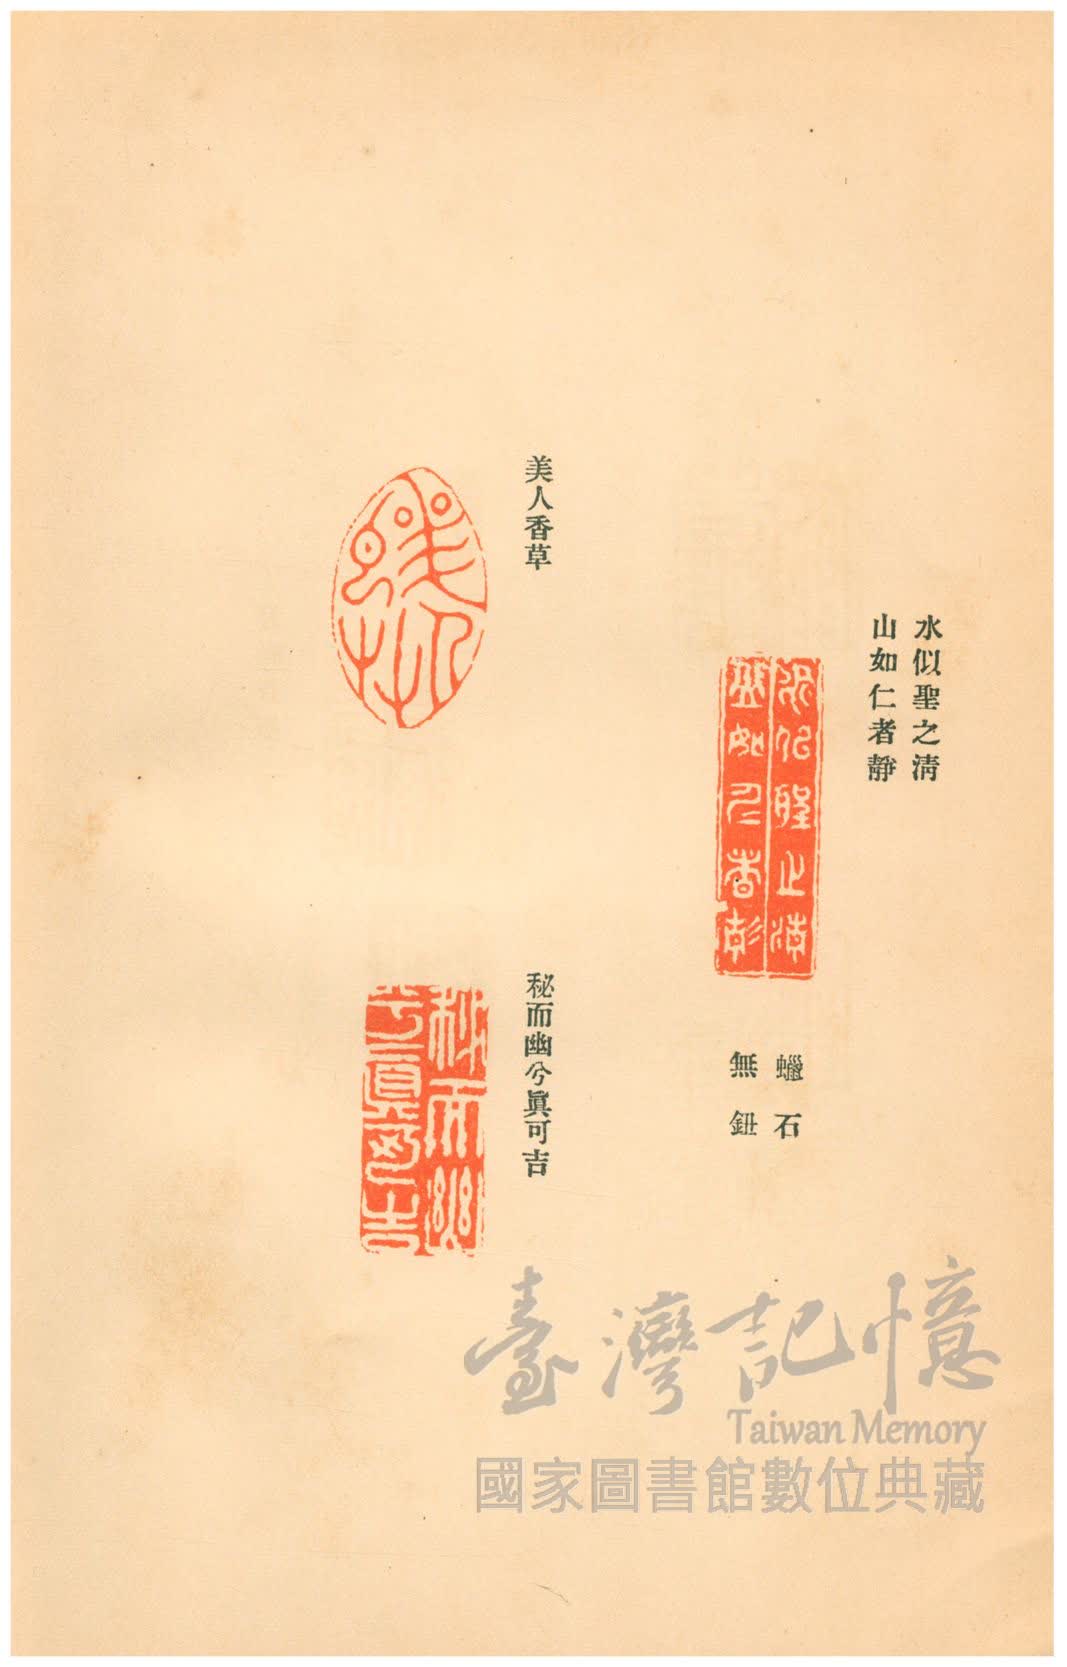 水似聖之清
山如仁者靜
蠟石
無鈕
美人香草
秘而幽兮眞可吉
臺灣記憶
Taiwan Memory
國家圖書館數位典藏